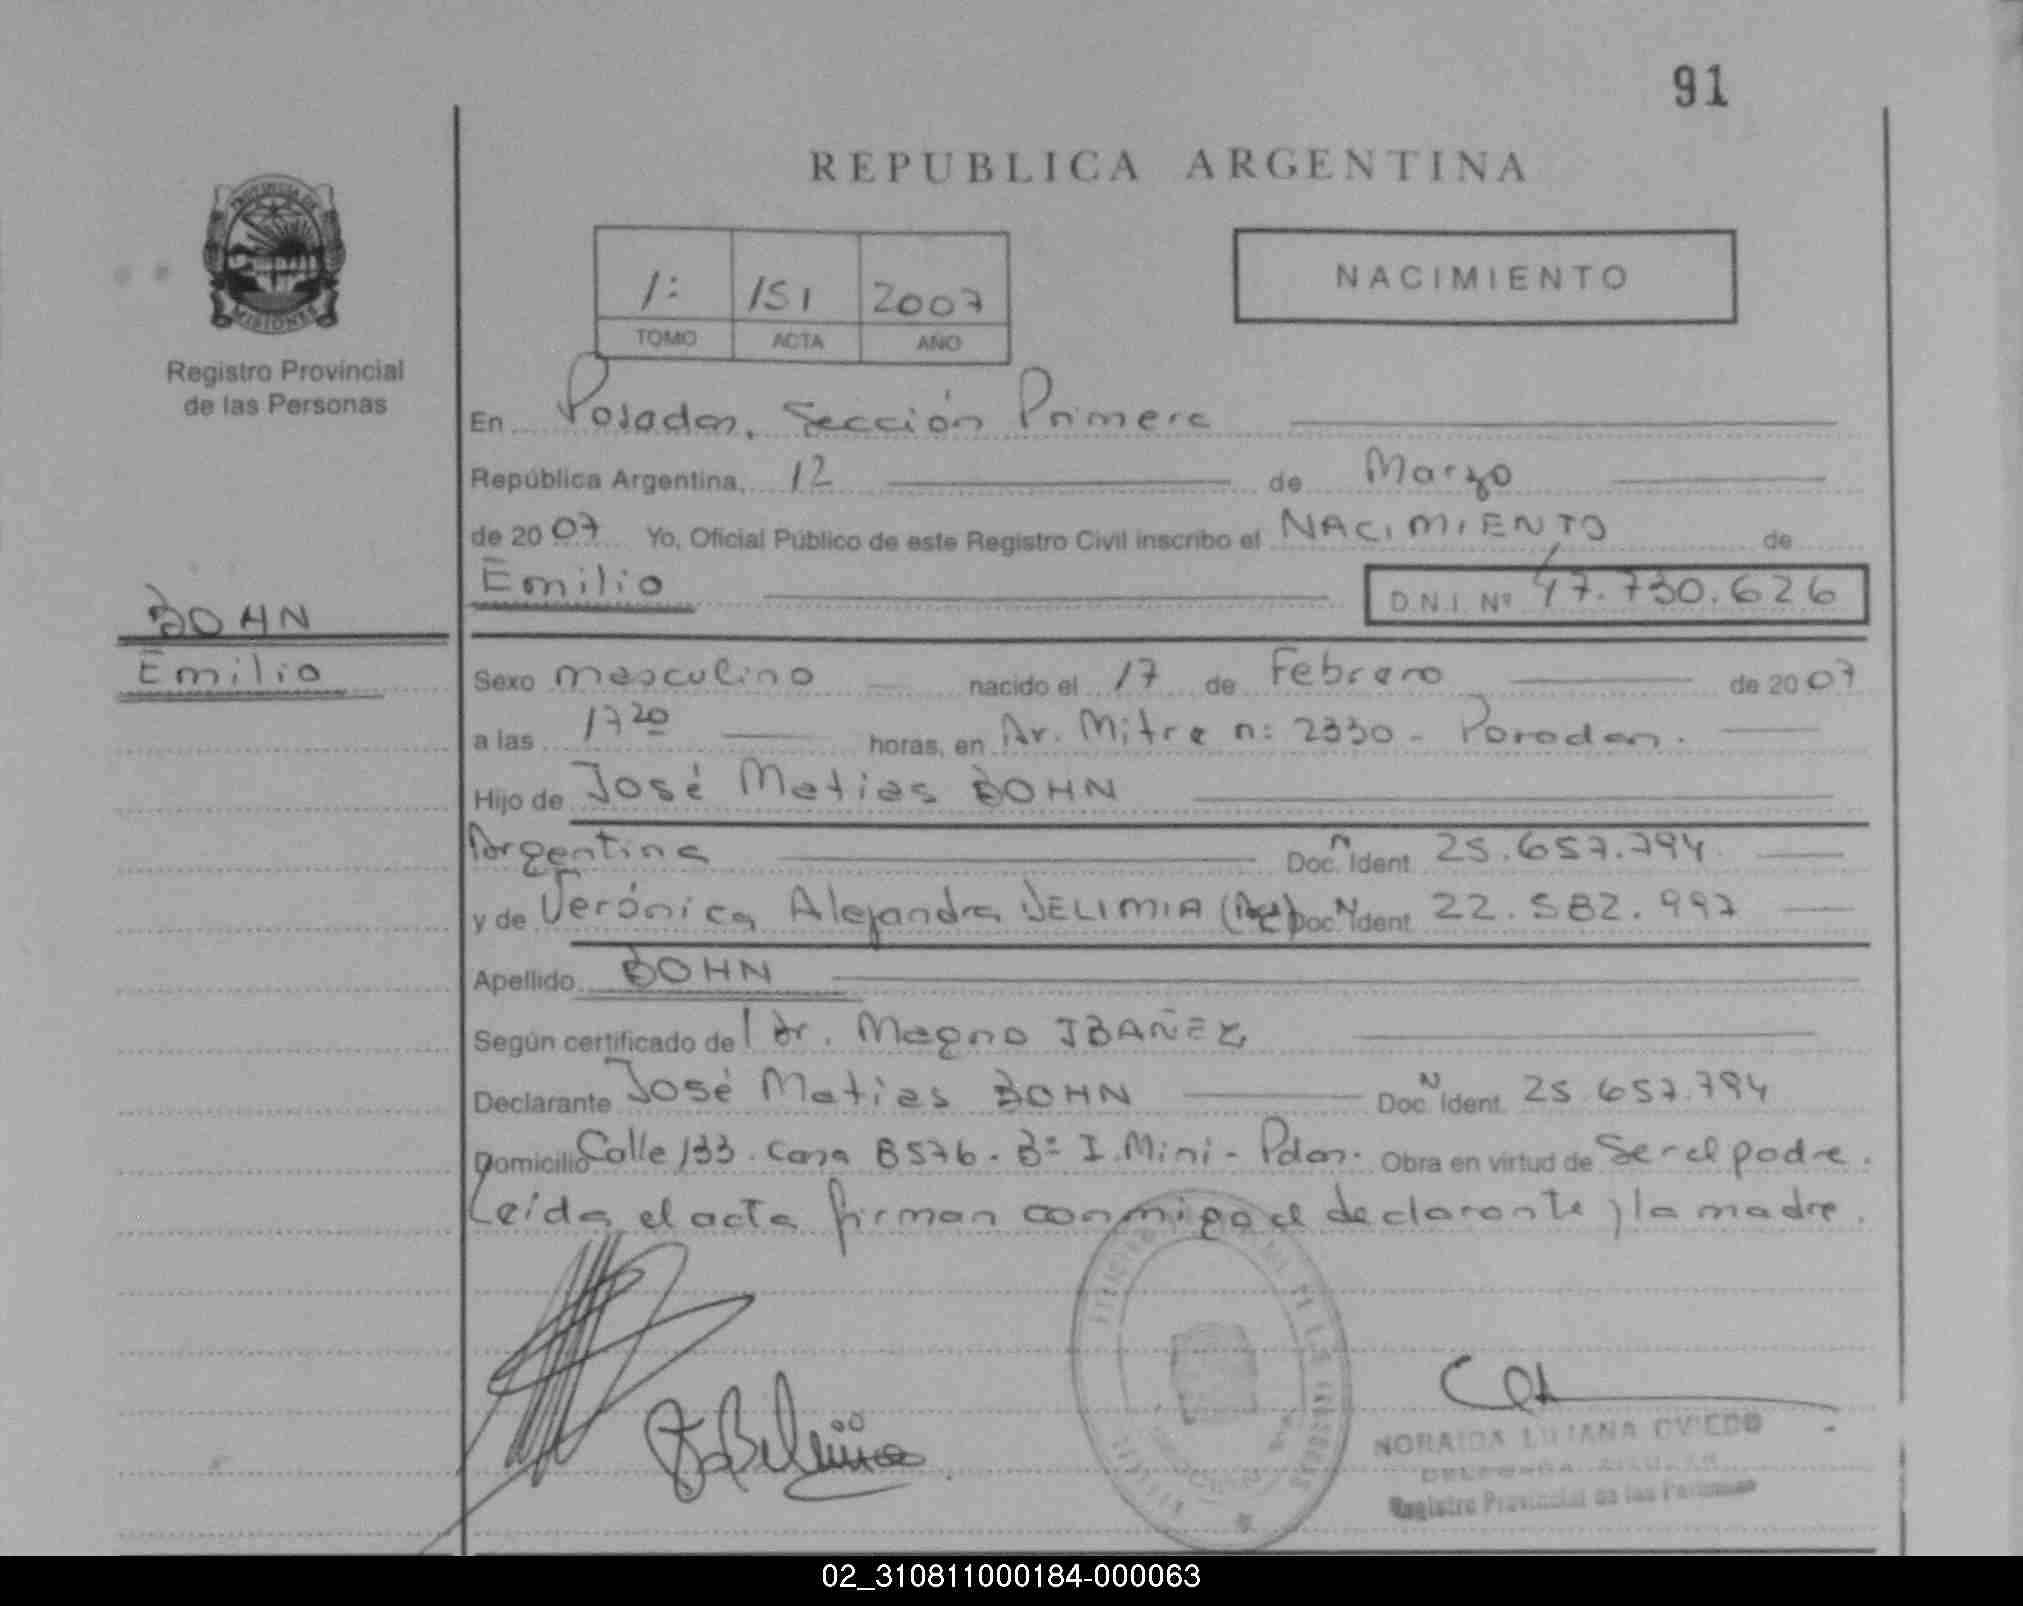 91
REPUBLICA ARGENTINA
PROVINCIA DE
MISIONES
Registro Provincial
de las Personas
1: 151 2007
TOMO ACTA AÑO
NACIMIENTO
En Posadas, Sección Primera
República Argentina, 12 de Marzo
de 2007 Yo, Oficial Público de este Registro Civil inscribo el NACIMIENTO de
Emilio D.N.I. Nº 47.730.626
BOHN
Emilio
Sexo masculino nacido el 17 de Febrero de 2007
a las 17 20 horas, en Av. Mitre n: 2330 - Posadas.
Hijo de José Matias BOHN
Argentina Doc. N Ident. 25.657.794
y de Verónica Alejandra (Arg) Doc. N Ident. 22.582.997
Apellido BOHN
Según certificado de l Dr. Magno IBAÑEZ
Declarante José Matias BOHN Doc. N Ident. 25.657.794
Domicilio Calle 133. Casa 8576. Bº I. Mini - Pdas. Obra en virtud de Ser el padre.
Leída el acta firman conmigo el declarante y la madre.
NORAIDA LILIANA OVIEDO
Registro Provincial de las Personas
02_310811000184-000063